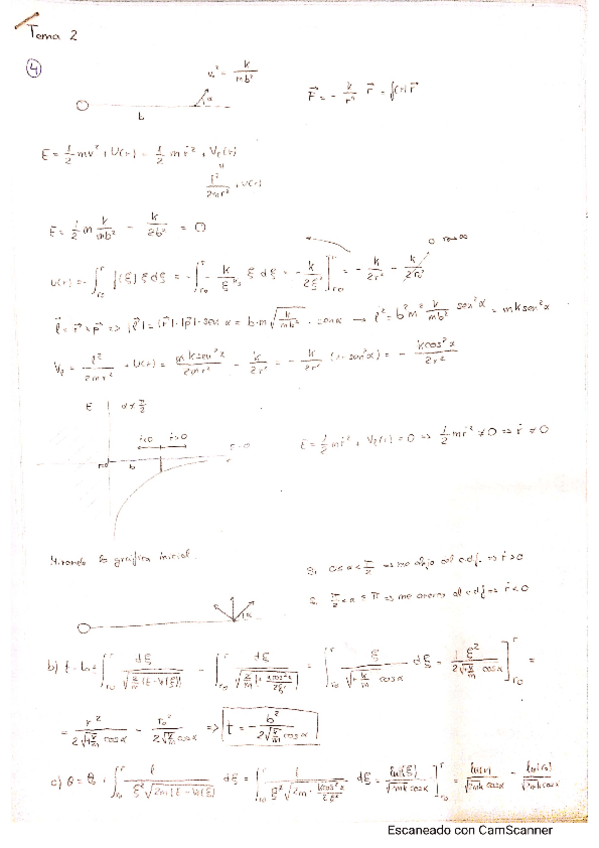 Tema 2
4
v₀² = k/mb²
F⃗ = - k/r⁴ r⃗ = f(r) r⃗
α
b
E = 1/2 mv² + U(r) = 1/2 mṙ² + Vₗ(r)
l²/2mr² + U(r)
E = 1/2 m k/mb² - k/2b² = 0
0 r₀→∞
U(r) = - ∫ f(ξ) ξ dξ = - ∫ - k/ξ⁴ ξ dξ = - k/2ξ² ] = - k/2r² - k/2r₀²
l⃗ = r⃗ × p⃗ => |l⃗| = |r⃗|·|p⃗|·sen α = b·m √(k/mb²) · sen α → l² = b²m² k/mb² sen²α = mk sen²α
Vₗ = l²/2mr² + U(r) = mk sen²α/2mr² - k/2r² = - k/2r² (1 - sen²α) = - k cos²α/2r²
E α ≠ π/2
ṙ<0 ṙ>0
E = 0
b
E = 1/2 mṙ² + Vₗ(r) = 0 => 1/2 mṙ² ≠ 0 => ṙ ≠ 0
Mirando la gráfica inicial.
Si 0 ≤ α < π/2 => me alejo del c.d.f. => ṙ > 0
Si π/2 < α ≤ π => me acerco al c.d.f => ṙ < 0
b) t - t₀ = ∫ dξ/√(2/m (E - V(ξ))) = ∫ dξ/√(2/m (+ k cos²α/2ξ²)) = ∫ ξ/(√(k/m) cos α) dξ = 1/2 ξ²/(√(k/m) cos α) ] =
= r²/(2√(k/m) cos α) - r₀²/(2√(k/m) cos α) => t = - b²/(2√(k/m) cos α)
c) θ = θ₀ + ∫ l/(ξ² √(2m(E - V(ξ)))) dξ = ∫ l/(ξ² √(2m · k cos²α/2ξ²)) dξ = l ln(ξ)/(√(mk) cos α) ] = l ln(r)/(√(mk) cos α) - l ln(r₀)/(√(mk) cos α)
Escaneado con CamScanner